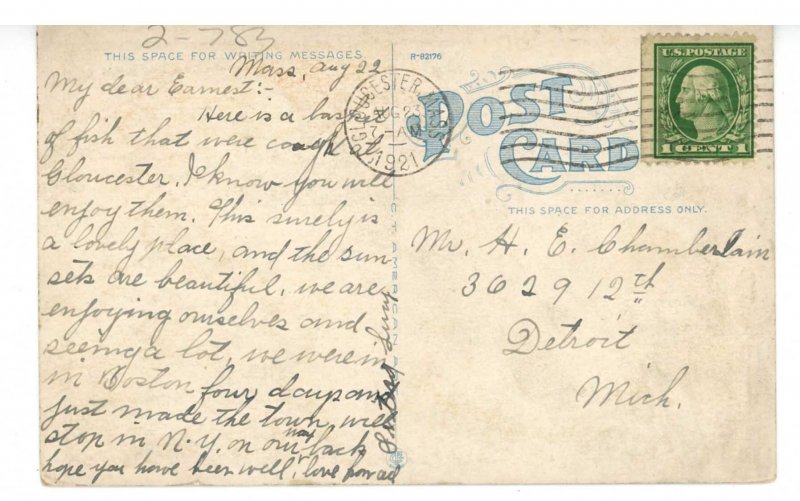 2-783
THIS SPACE FOR WRITING MESSAGES
Mass, Aug 22
My dear Earnest:-
Here is a
of fish that were caught at
Gloucester. I know you will
enjoy them. This surely is
a lovely place, and the sun-
sets are beautiful, we are
enjoying ourselves and
seeing a lot, we were in
in Boston four days an
just made the town, will
stop in N.Y. on our way back
hope you have been well, love from
R-82176
GLOUCESTER, MASS.
AUG 23
7-AM
1921
POST
CARD
U.S. POSTAGE
1 CENT 1
THIS SPACE FOR ADDRESS ONLY.
Mr. H. E. Chamberlain
3629 12th
Detroit
Mich.
C. T. AMERICAN